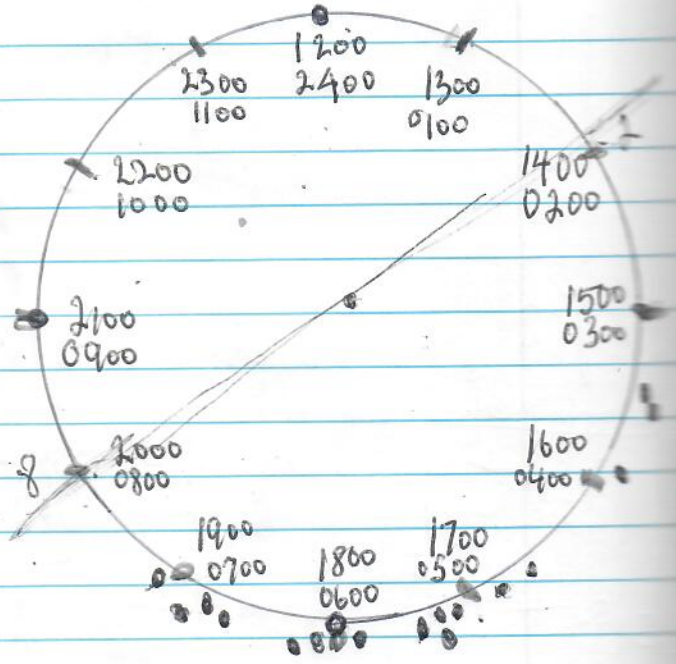 1200
2400
1300
0100
1400
0200
1500
0300
1600
0400
1700
0500
1800
0600
1900
0700
2000
0800
8
2100
0900
2200
1000
2300
1100